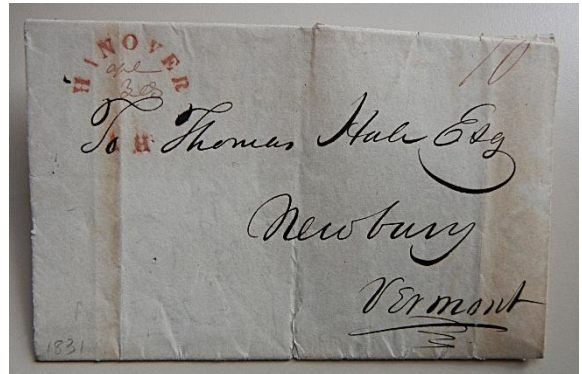 HANOVER
apl
28
N H
10
To Thomas Hale Esq
Newbury
Vermont
1831